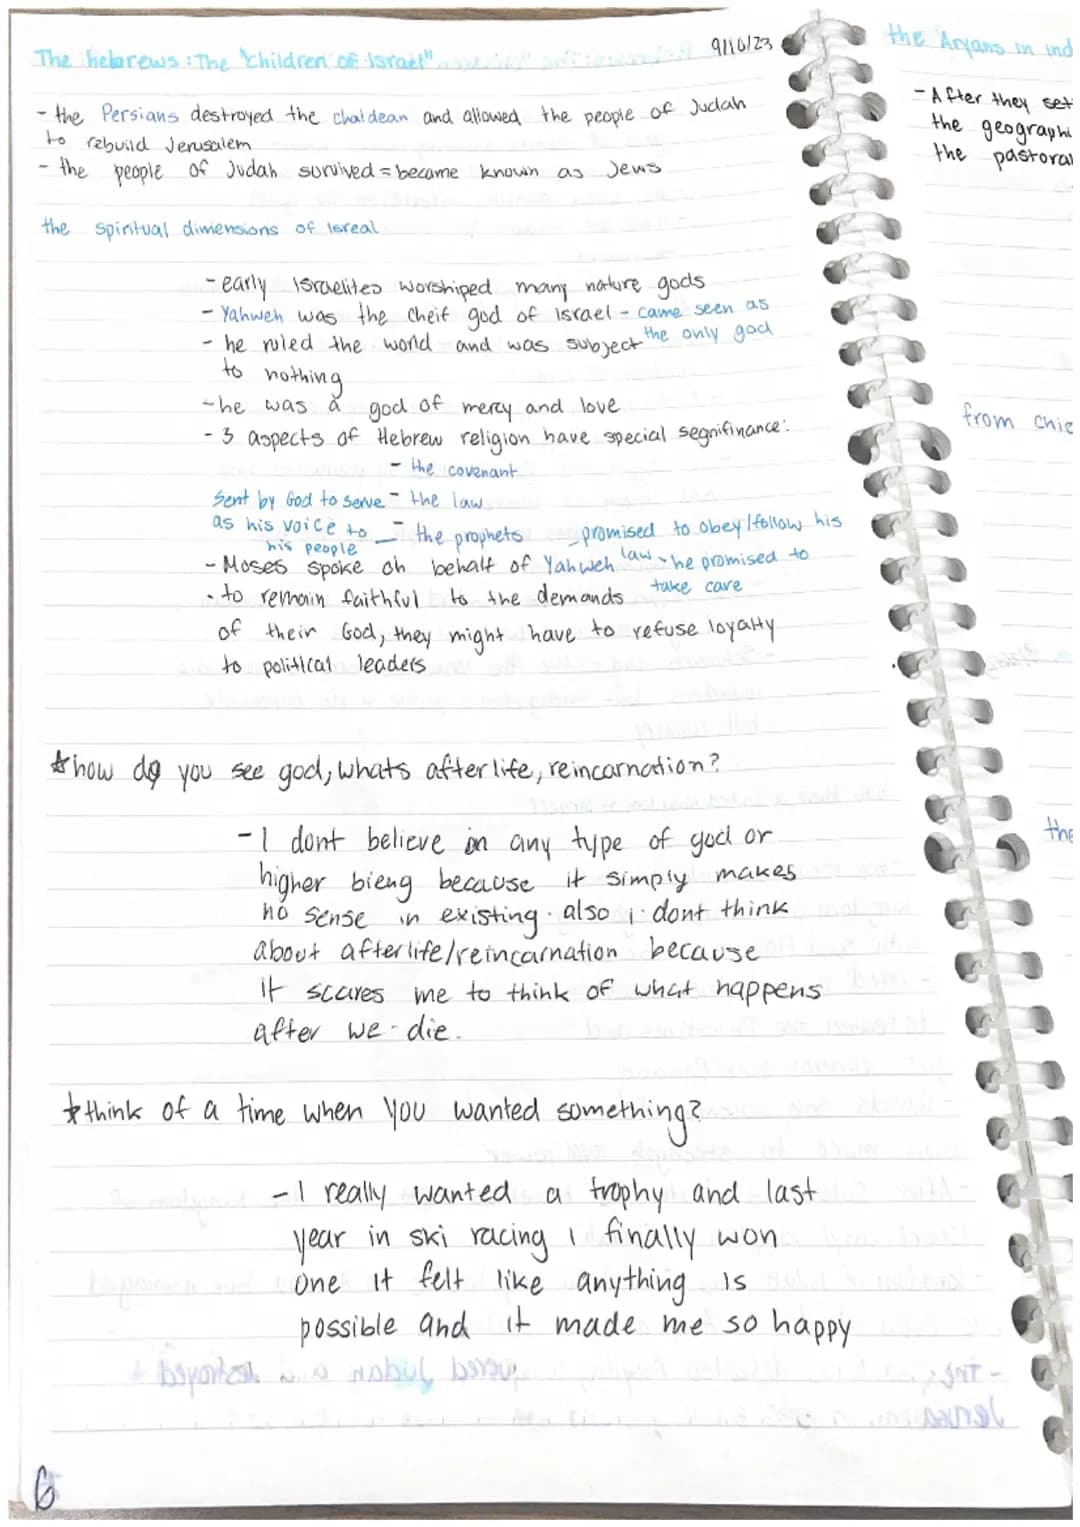 The hebrews : The "children of Israel" 9/10/23
- the Persians destroyed the chaldean and allowed the people of Judah
to rebuild Jerusalem
- the people of Judah survived = became known as Jews
the spiritual dimensions of Isreal
- early Israelites worshiped many nature gods
- Yahweh was the cheif god of israel - came seen as
the only god
- he ruled the world and was subject
to nothing
- he was a god of mercy and love
- 3 aspects of Hebrew religion have special segnifinance:
- the covenant
sent by God to serve - the law
as his voice to - the prophets - promised to obey/follow his
his people
law - he promised to
take care
- Moses spoke oh behalf of Yahweh
- to remain faithful to the demands
of their God, they might have to refuse loyalty
to political leaders
* how do you see god, whats afterlife, reincarnation?
- I dont believe in any type of god or
higher bieng because it simply makes
no sense in existing. also i dont think
about afterlife/reincarnation because
it scares me to think of what happens
after we die.
* think of a time when you wanted something?
- I really wanted a trophy and last
year in ski racing i finally won
one it felt like anything is
possible and it made me so happy
6
the Aryans in ind
- After they set
the geographi
the pastoral
from chie
the